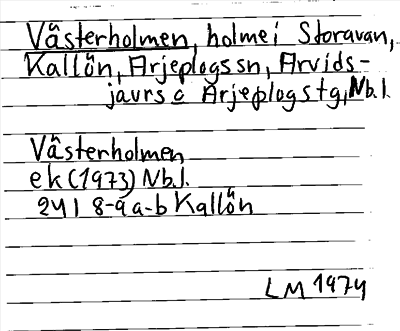 Västerholmen, holme i Storavan,
Kallön, Arjeplogs sn, Arvids-
jaurs o Arjeplogs tg, Nb.l.
Västerholmen
ek (1973) Nb.l.
24 I 8-9 a-b Kallön
LM 1974